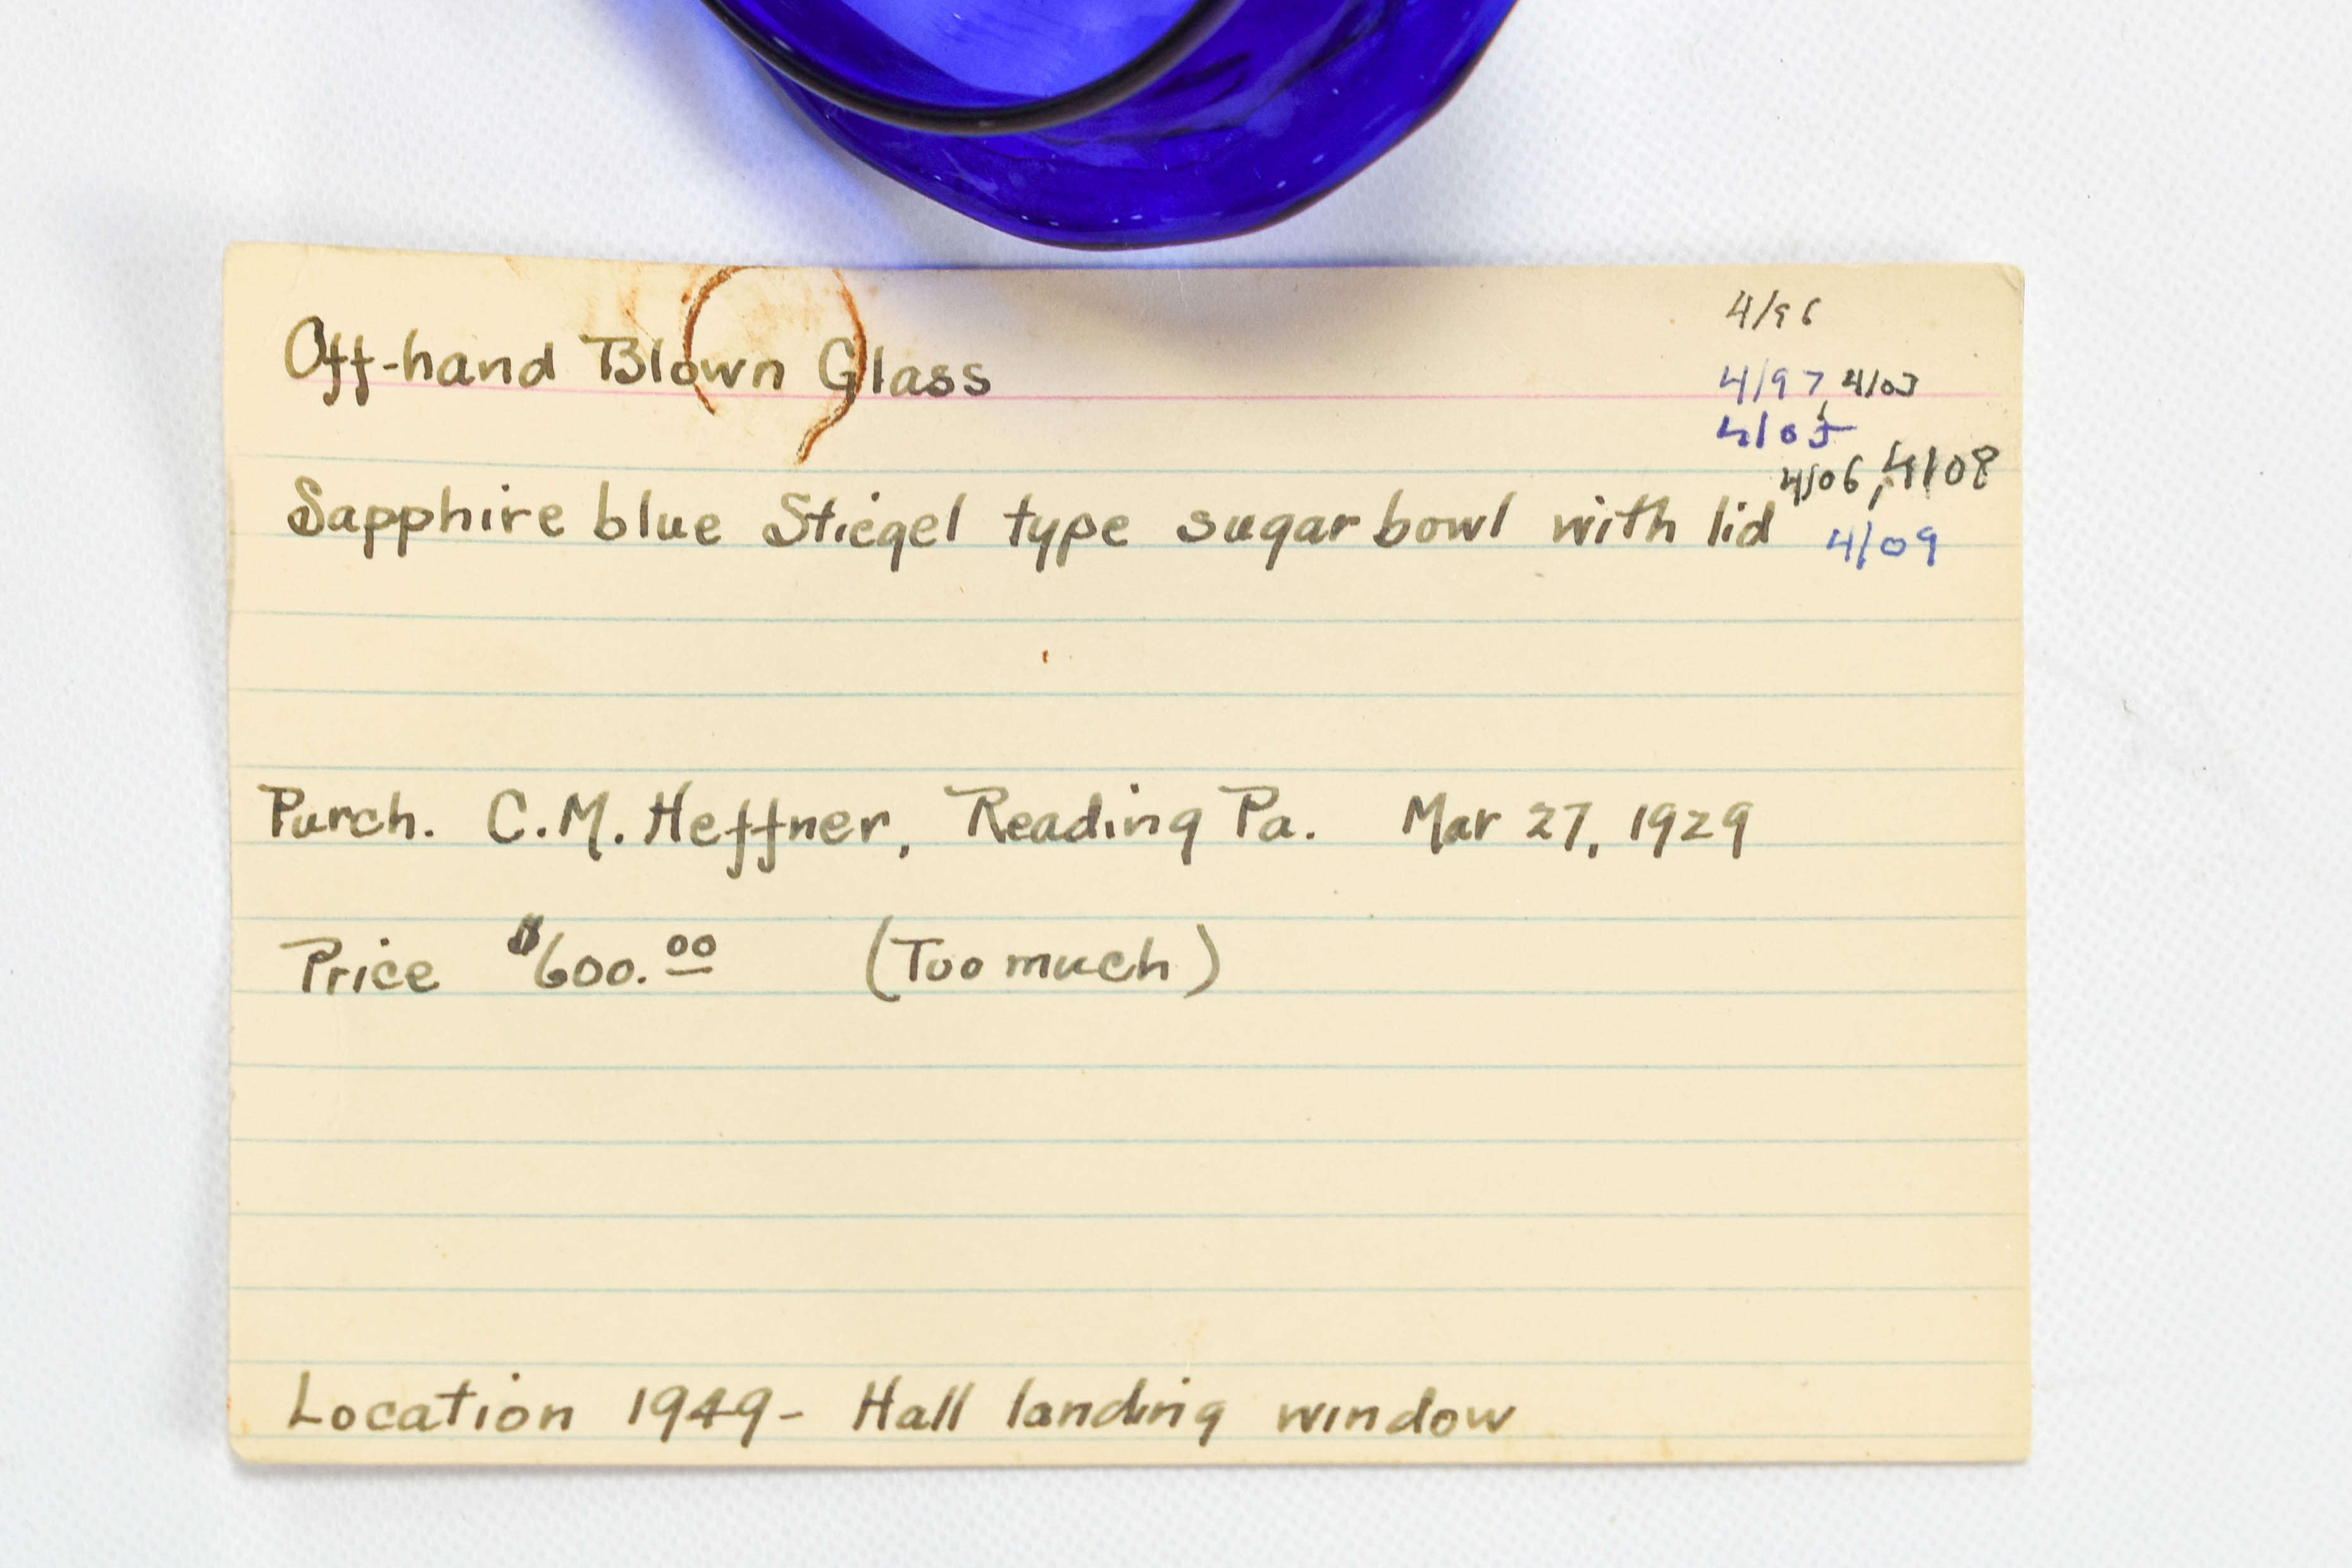 4/96
Off-hand Blown Glass
4/97 4/03
4/05
4/06, 4/08
Sapphire blue Stiegel type sugar bowl with lid
4/09
Purch. C.M. Heffner, Reading Pa. Mar 27, 1929
Price $600.00 (Too much)
Location 1949 - Hall landing window